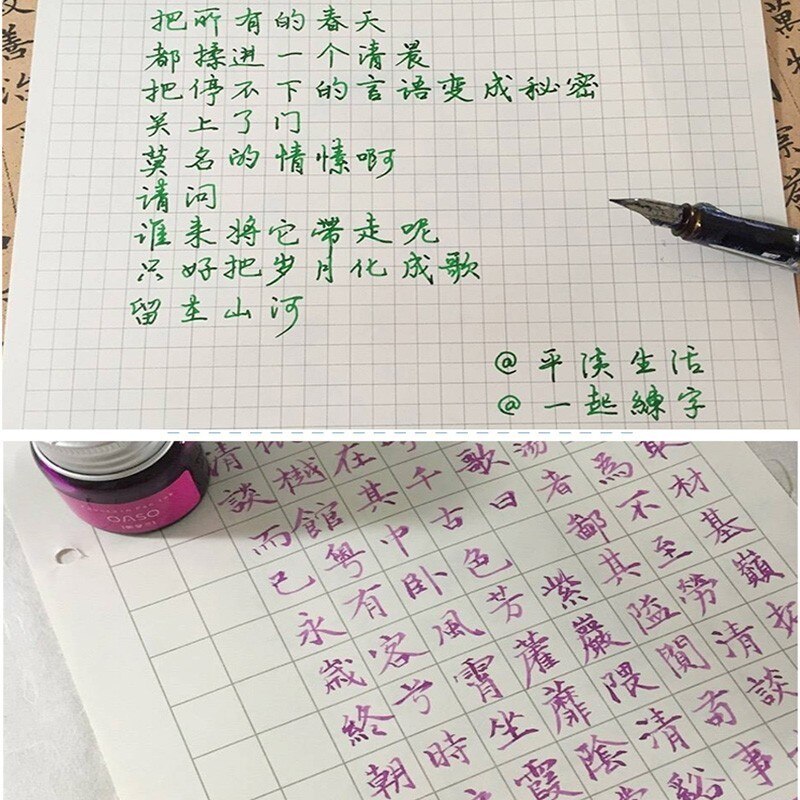 把所有的春天
都揉进一个清晨
把停不下的言語变成秘密
关上了门
莫名的情愫啊
请问
谁来将它帶走呢
只好把岁月化成歌
留在山河
@平淡生活
@一起練字
OASO
清
談樾在
而館其千歌湯
已粵中古曰者為取
永有卧色鄙不材
歲客風芳紫其至基
終兮霄蘿巖隘勞巔
朝時坐蘼隈間清拓
霞陰清苟談
谿事